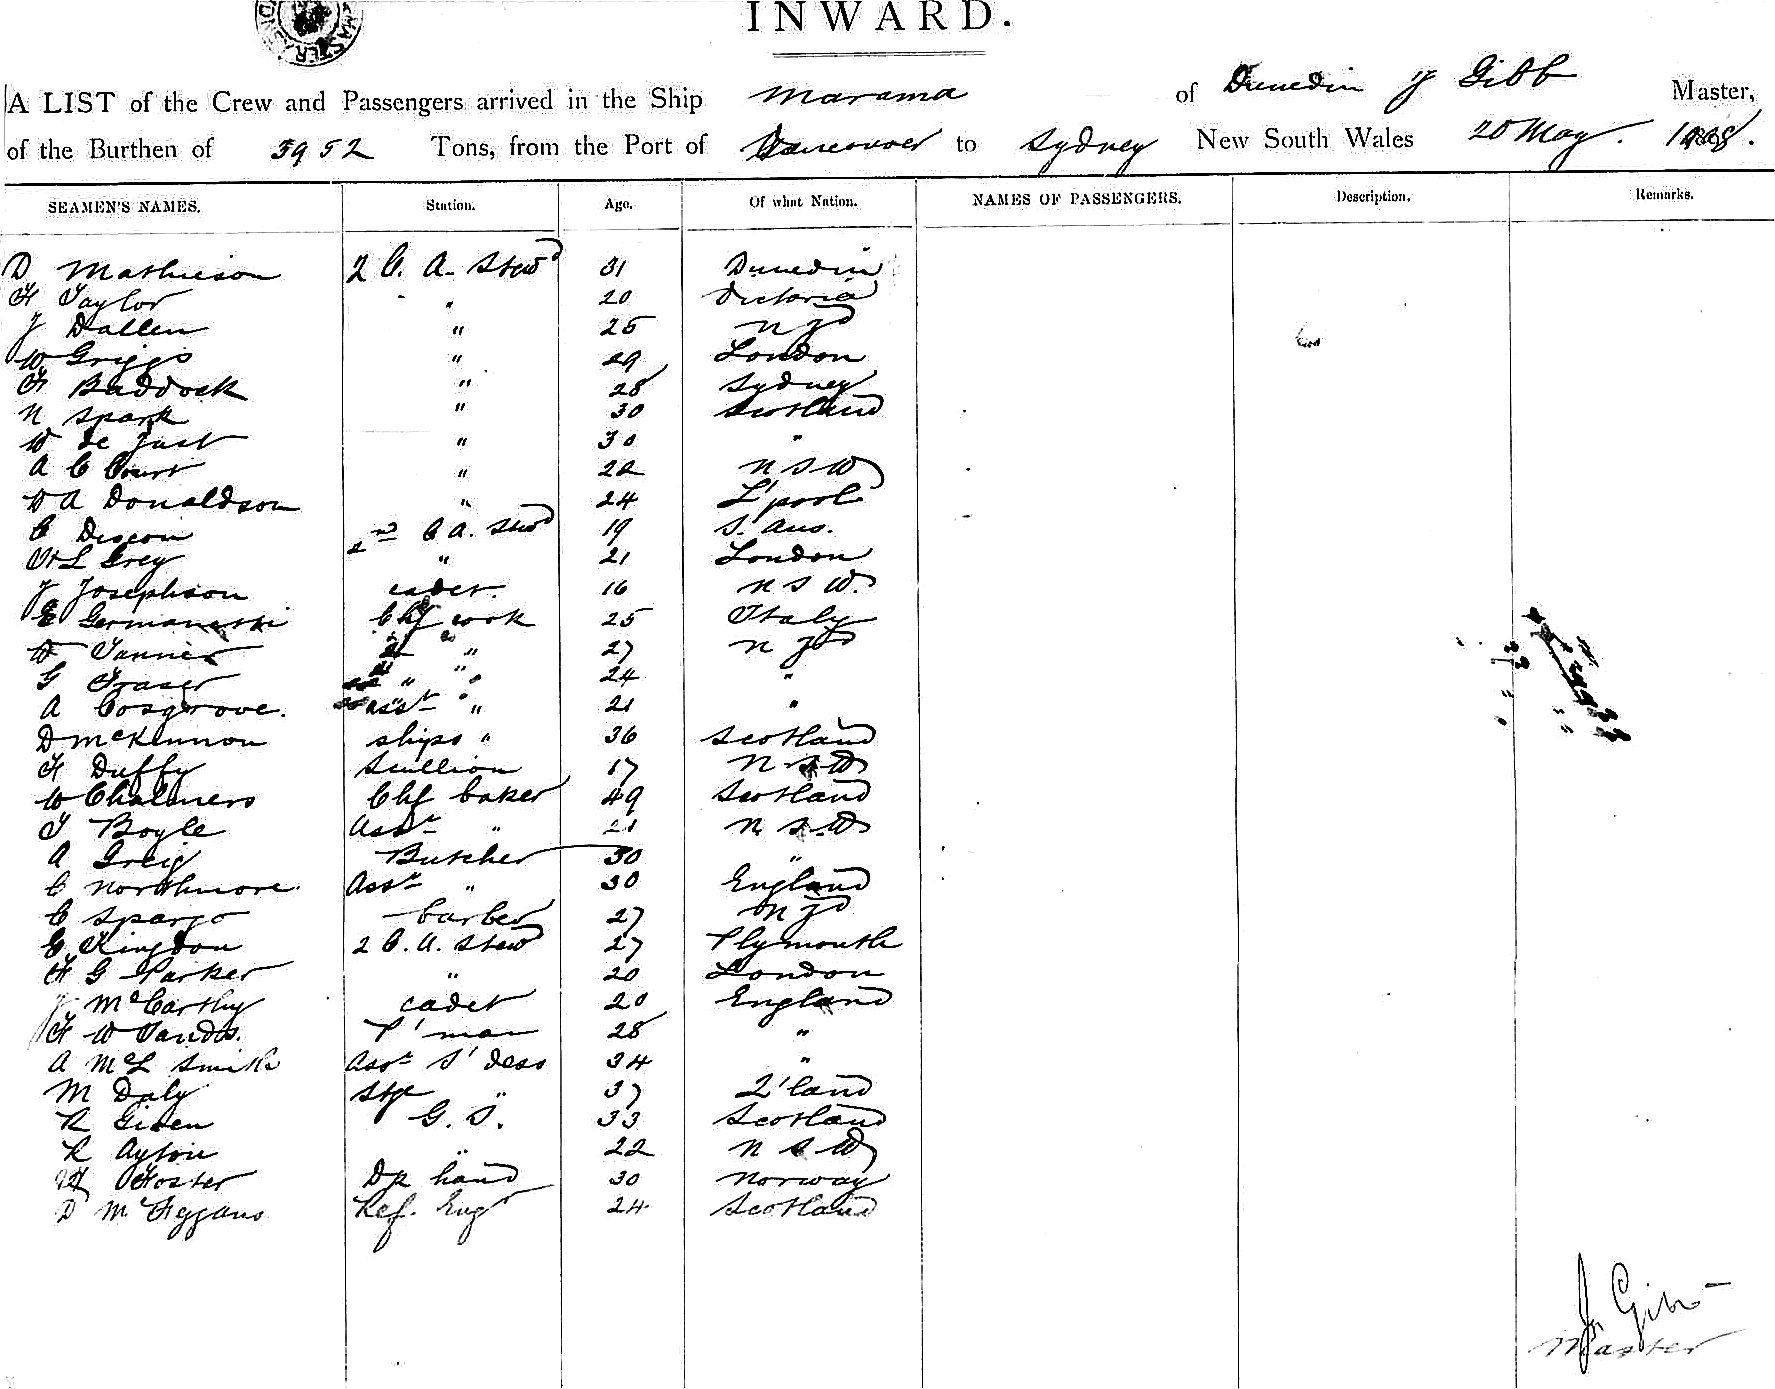 INWARD.
A LIST of the Crew and Passengers arrived in the Ship Marama of Dunedin J Gibb Master,
of the Burthen of 5952 Tons, from the Port of Vancouver to Sydney New South Wales 20 May. 1908.
SEAMEN'S NAMES. Station. Age. Of what Nation. NAMES OF PASSENGERS. Description. Remarks.
D Mathieson 2 C. A. Stewd 31 Dunedin
H Taylor " 20 Victoria
J Dallen " 25 N Zd
W Griggs " 29 London
H Baddock " 28 Sydney
N Spark " 30 Scotland
W de Just " 30 "
A C Court " 22 N S W
W A Donaldson " 24 L'pool
C Dixon 2nd C A. Stwd 19 S. Aus.
W L Grey " 21 London
J Josephson cadet. 16 N S W.
E Chf cook 25 Italy
W Tanner 2 " " 27 N Zd
G Fraser " " 24 "
A Cosgrove. asst " 21 "
D McKinnon ships " 36 Scotland
H Duffy Scullion 17 N S W
W Chalmers Chf baker 49 Scotland
T Boyle Asst " 21 N S W
A Greig Butcher 30 "
C Northmore. Asst " 30 England
C Spargo barber 27 N Zd
C Kingdon 2 C. A. Stewd 27 Plymouth
H G Parker " 20 London
J McCarthy cadet 20 England
H W Sands. P'man 28 "
A McL Smith Asst S'dess 34 "
M Daly Stge " 37 Q'land
R Giben G. S. 33 Scotland
R Ayton " 22 N S W
H Foster Dk hand 30 Norway
D Ref. Engr 24 Scotland
J Gibb
Master